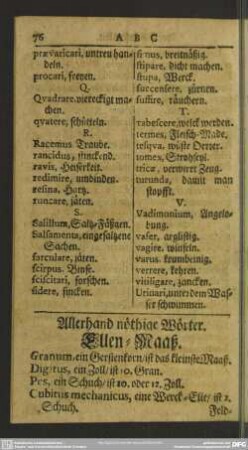 76 A B C
prævaricari, untreu han-
deln.
procari, freyen.
Q.
Qvadrare, viereckigt ma-
chen.
qvatere, schütteln.
R.
Racemus Traube.
rancidus, stinckend.
ravis, Heiserkeit.
redimire, umbinden.
resina, Hartz.
runcare, jäten.
S.
Salillum, Saltz-Fäßgen.
Salsamenta, eingesaltzene
Sachen.
sarculare, jäten.
scirpus, Binse.
sciscitari, forschen.
sidere, sincken.
simus, breitnäsig.
stipare, dicht machen.
stupa, Werck.
succensere, zürnen.
suffire, räuchern.
T.
tabescere, welck werden.
termes, Fleisch-Made.
tesqva, wüste Oerter.
tomes, Strohseyl.
tricæ, verwirrt Zeug.
turunda, damit man
stopfft.
V.
Vadimonium, Angelo-
bung.
vafer, arglistig.
vagire, winseln.
varus, krumbeinig.
verrere, kehren.
vitiligare, zancken.
Urinari, unter dem Was-
ser schwimmen.
Allerhand nöthige Wörter.
Ellen-Maaß.
Granum, ein Gerstenkorn/ ist das kleinste Maaß.
Digitus, ein Zoll/ ist 10. Gran.
Pes, ein Schuch/ ist 10. oder 12. Zoll.
Cubitus mechanicus, eine Werck-Elle/ ist 2.
Schuch.
Feld-